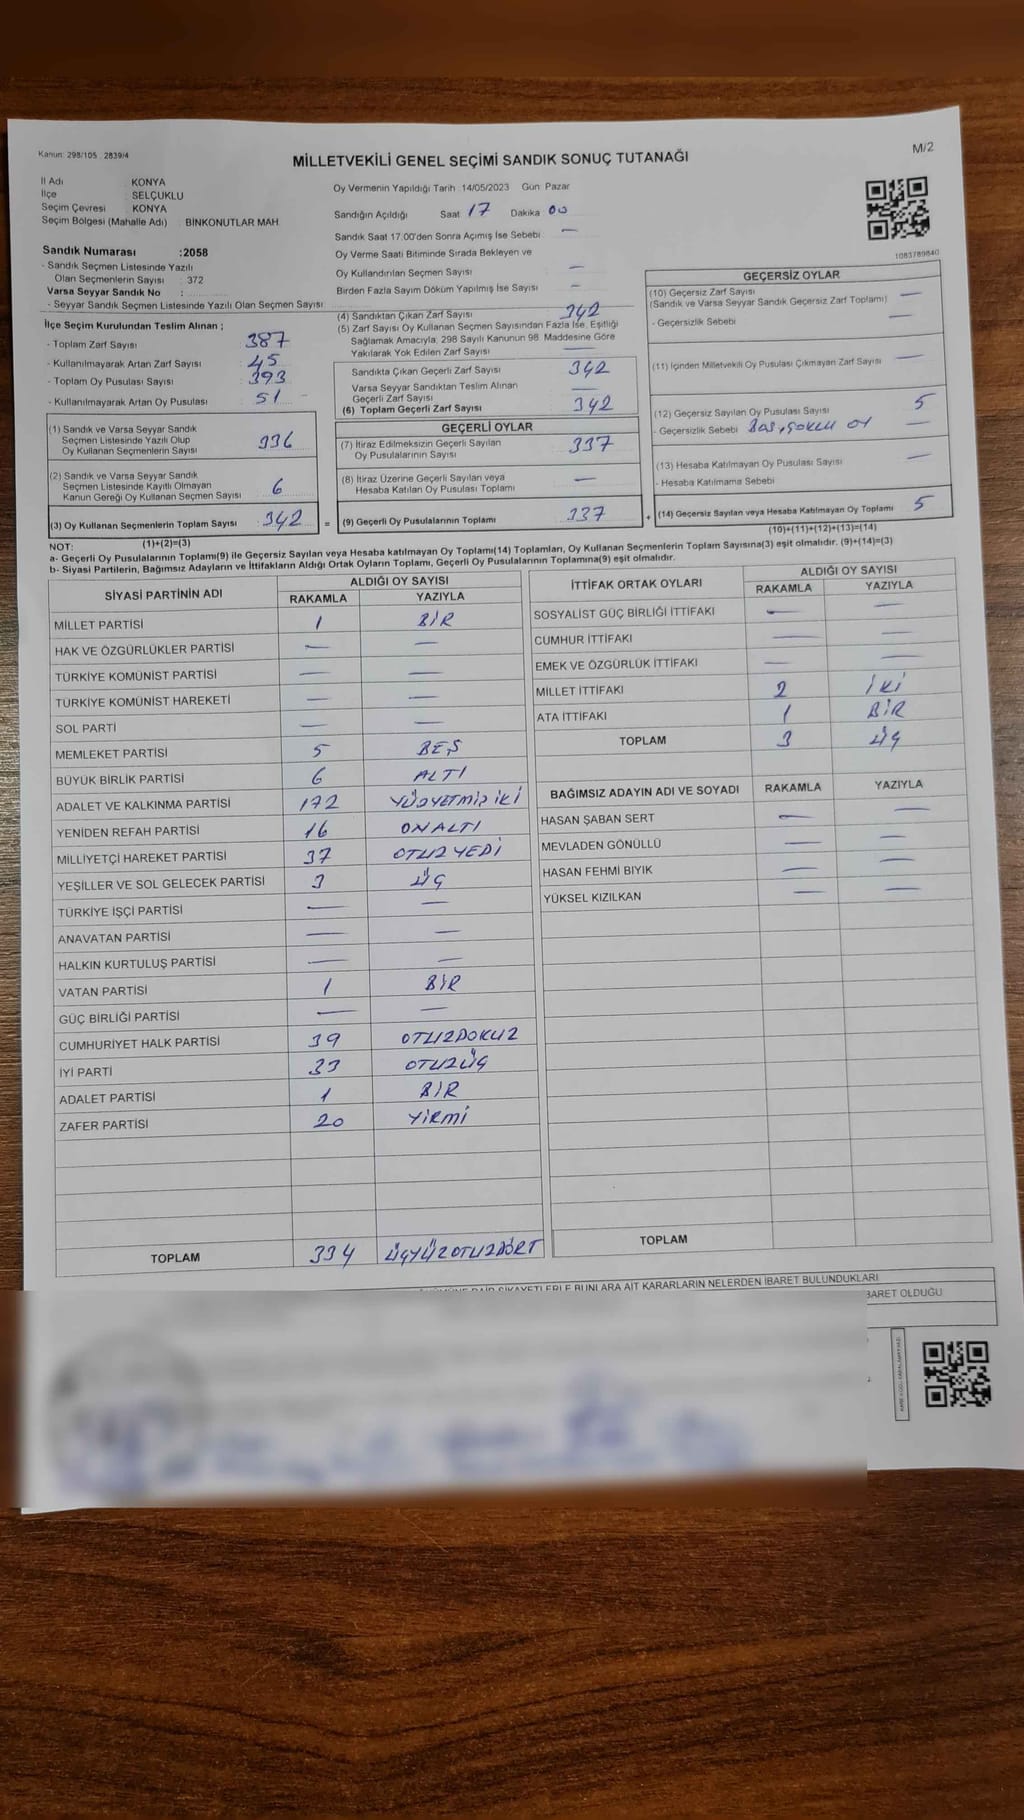 Kanun: 298/105 . 2839/4
MİLLETVEKİLİ GENEL SEÇİMİ SANDIK SONUÇ TUTANAĞI
M/2
İl Adı KONYA
İlçe SELÇUKLU
Seçim Çevresi KONYA
Seçim Bölgesi (Mahalle Adı) : BİNKONUTLAR MAH.
Oy Vermenin Yapıldığı Tarih : 14/05/2023 Gün: Pazar
Sandığın Açıldığı Saat 17 Dakika 00
Sandık Saat 17:00'den Sonra Açımış İse Sebebi : —
Oy Verme Saati Bitiminde Sırada Bekleyen ve
Oy Kullandırılan Seçmen Sayısı —
Birden Fazla Sayım Döküm Yapılmış İse Sayısı —
1083789840
Sandık Numarası :2058
- Sandık Seçmen Listesinde Yazılı
Olan Seçmenlerin Sayısı : 372
Varsa Seyyar Sandık No :
- Seyyar Sandık Seçmen Listesinde Yazılı Olan Seçmen Sayısı:
İlçe Seçim Kurulundan Teslim Alınan ;
- Toplam Zarf Sayısı 387
- Kullanılmayarak Artan Zarf Sayısı 45
- Toplam Oy Pusulası Sayısı 393
- Kullanılmayarak Artan Oy Pusulası 51
(1) Sandık ve Varsa Seyyar Sandık
Seçmen Listesinde Yazılı Olup
Oy Kullanan Seçmenlerin Sayısı 336
(2) Sandık ve Varsa Seyyar Sandık
Seçmen Listesinde Kayıtlı Olmayan
Kanun Gereği Oy Kullanan Seçmen Sayısı 6
(3) Oy Kullanan Seçmenlerin Toplam Sayısı 342 =
(1)+(2)=(3)
(4) Sandıktan Çıkan Zarf Sayısı 342
(5) Zarf Sayısı Oy Kullanan Seçmen Sayısından Fazla İse, Eşitliği
Sağlamak Amacıyla, 298 Sayılı Kanunun 98. Maddesine Göre
Yakılarak Yok Edilen Zarf Sayısı —
Sandıkta Çıkan Geçerli Zarf Sayısı 342
Varsa Seyyar Sandıktan Teslim Alınan
Geçerli Zarf Sayısı —
(6) Toplam Geçerli Zarf Sayısı 342
GEÇERLİ OYLAR
(7) İtiraz Edilmeksizin Geçerli Sayılan
Oy Pusulalarının Sayısı 337
(8) İtiraz Üzerine Geçerli Sayılan veya
Hesaba Katılan Oy Pusulası Toplamı —
(9) Geçerli Oy Pusulalarının Toplamı 337 +
GEÇERSİZ OYLAR
(10) Geçersiz Zarf Sayısı —
(Sandık ve Varsa Seyyar Sandık Geçersiz Zarf Toplamı)
- Geçersizlik Sebebi —
(11) İçinden Milletvekili Oy Pusulası Çıkmayan Zarf Sayısı —
(12) Geçersiz Sayılan Oy Pusulası Sayısı 5
- Geçersizlik Sebebi BOŞ, ÇOKLU OY —
(13) Hesaba Katılmayan Oy Pusulası Sayısı —
- Hesaba Katılmama Sebebi
(14) Geçersiz Sayılan veya Hesaba Katılmayan Oy Toplamı 5
(10)+(11)+(12)+(13)=(14)
NOT:
a- Geçerli Oy Pusulalarının Toplamı(9) ile Geçersiz Sayılan veya Hesaba katılmayan Oy Toplamı(14) Toplamları, Oy Kullanan Seçmenlerin Toplam Sayısına(3) eşit olmalıdır. (9)+(14)=(3)
b- Siyasi Partilerin, Bağımsız Adayların ve İttifakların Aldığı Ortak Oyların Toplamı, Geçerli Oy Pusulalarının Toplamına(9) eşit olmalıdır.
SİYASİ PARTİNİN ADI ALDIĞI OY SAYISI
RAKAMLA YAZIYLA
MİLLET PARTİSİ 1 BİR
HAK VE ÖZGÜRLÜKLER PARTİSİ — —
TÜRKİYE KOMÜNİST PARTİSİ — —
TÜRKİYE KOMÜNİST HAREKETİ — —
SOL PARTİ — —
MEMLEKET PARTİSİ 5 BEŞ
BÜYÜK BİRLİK PARTİSİ 6 ALTI
ADALET VE KALKINMA PARTİSİ 172 YÜZYETMİŞ İKİ
YENİDEN REFAH PARTİSİ 16 ONALTI
MİLLİYETÇİ HAREKET PARTİSİ 37 OTUZYEDİ
YEŞİLLER VE SOL GELECEK PARTİSİ 3 ÜÇ
TÜRKİYE İŞÇİ PARTİSİ — —
ANAVATAN PARTİSİ — —
HALKIN KURTULUŞ PARTİSİ — —
VATAN PARTİSİ 1 BİR
GÜÇ BİRLİĞİ PARTİSİ — —
CUMHURİYET HALK PARTİSİ 39 OTUZDOKUZ
İYİ PARTİ 33 OTUZÜÇ
ADALET PARTİSİ 1 BİR
ZAFER PARTİSİ 20 YİRMİ
TOPLAM 334 ÜÇYÜZOTUZDÖRT
İTTİFAK ORTAK OYLARI ALDIĞI OY SAYISI
RAKAMLA YAZIYLA
SOSYALİST GÜÇ BİRLİĞİ İTTİFAKI — —
CUMHUR İTTİFAKI — —
EMEK VE ÖZGÜRLÜK İTTİFAKI — —
MİLLET İTTİFAKI 2 İKİ
ATA İTTİFAKI 1 BİR
TOPLAM 3 ÜÇ
BAĞIMSIZ ADAYIN ADI VE SOYADI RAKAMLA YAZIYLA
HASAN ŞABAN SERT — —
MEVLADEN GÖNÜLLÜ — —
HASAN FEHMİ BIYIK — —
YÜKSEL KIZILKAN — —
TOPLAM
ŞİKAYETLERLE BUNLARA AİT KARARLARIN NELERDEN İBARET BULUNDUKLARI
İBARET OLDUĞU